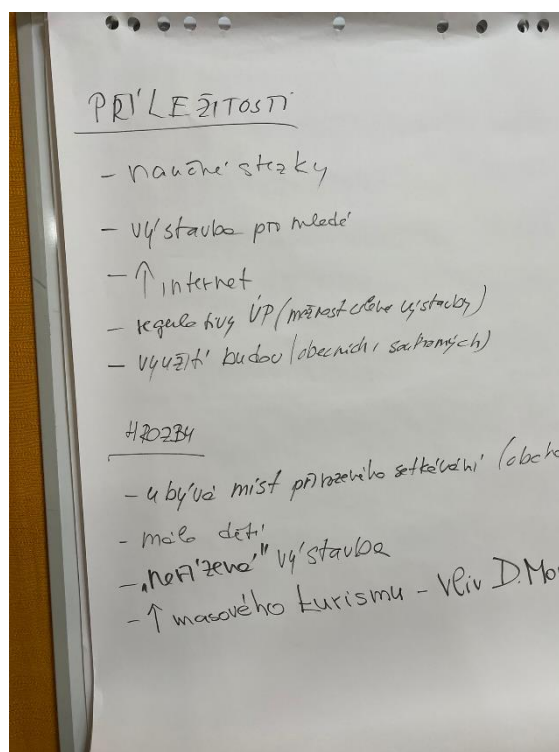 PŘÍLEŽITOSTI
- naučné stezky
- výstavba pro mladé
- ↑ internet
- regulativy ÚP (možnost výstavby)
- využití budov (obecních i soukromých)
HROZBY
- ubývá míst přirozeného setkávání (obcho
- málo dětí
- „neřízená" výstavba
- ↑ masového turismu - vliv D. Mo